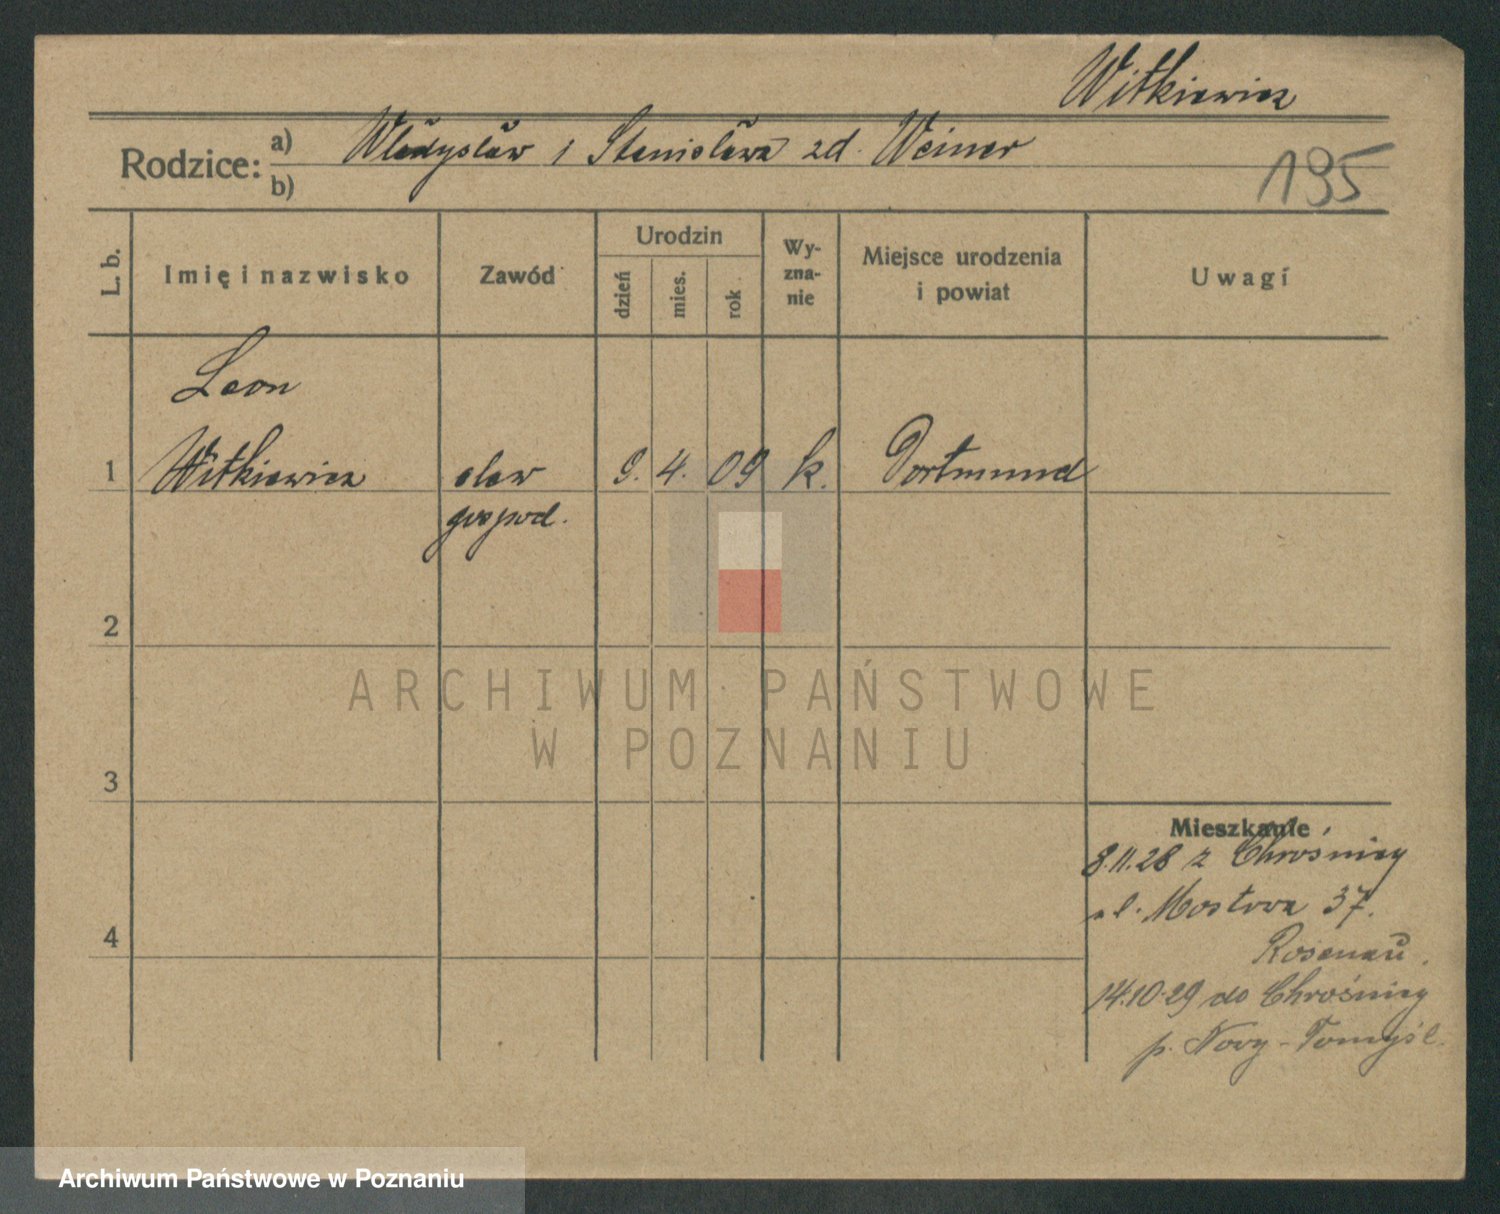 Witkiewicz
Rodzice:
a) Władysław i Stanisława zd. Weiner
b)
195
L. b.
Imię i nazwisko
Zawód
Urodzin
dzień
mies.
rok
Wy-
zna-
nie
Miejsce urodzenia
i powiat
Uwagi
Leon
1 Witkiewicz elew 9. 4. 09 k. Dortmund
gospod.
2
3
4
Mieszkanie
8.11.28 z Chrośnicy
ul. Mostowa 37.
Rosenau.
14.10.29 do Chrośnicy
p. Nowy-Tomyśl.
ARCHIWUM PAŃSTWOWE
W POZNANIU
Archiwum Państwowe w Poznaniu